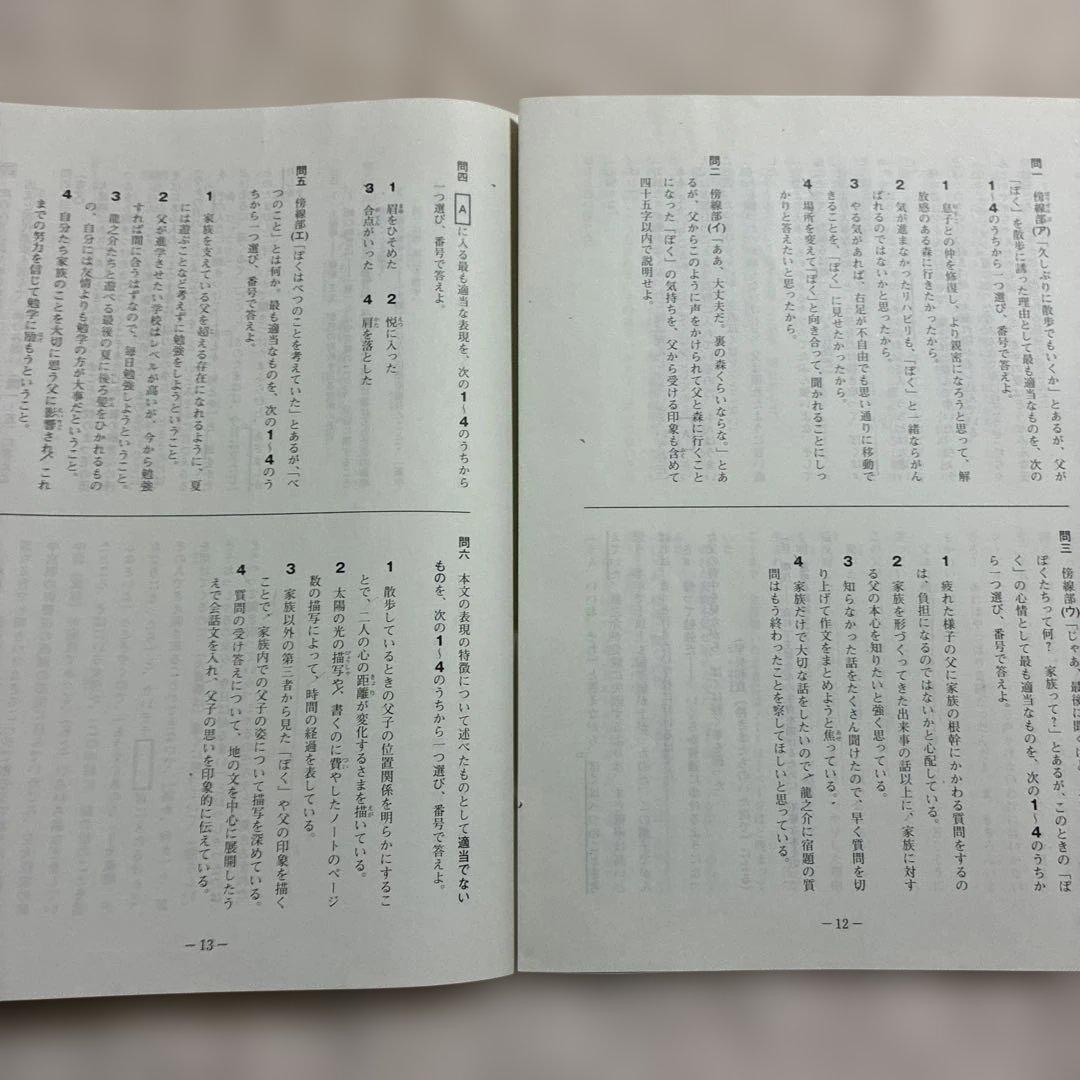 問一 傍線部(ア)「久しぶりに散歩でもいくか」とあるが、父が
「ぼく」を散歩に誘った理由として最も適当なものを、次の
1〜4のうちから一つ選び、番号で答えよ。
1 息子との仲を修復し、より親密になろうと思って、解
放感のある森に行きたかったから。
2 気が進まなかったリハビリも、「ぼく」と一緒ならがん
ばれるのではないかと思ったから。
3 やる気があれば、右足が不自由でも思い通りに移動で
きることを、「ぼく」に見せたかったから。
4 場所を変えて「ぼく」と向き合って、聞かれることにしっ
かりと答えたいと思ったから。
問二 傍線部(イ)「ああ、大丈夫だ。裏の森くらいならな。」とあ
るが、父からこのように声をかけられて父と森に行くこと
になった「ぼく」の気持ちを、父から受ける印象も含めて
四十五字以内で説明せよ。
問三 傍線部(ウ)「じゃあ、最後に聞くけど
ぼくたちって何? 家族って?」とあるが、このときの「ぼ
く」の心情として最も適当なものを、次の1〜4のうちか
ら一つ選び、番号で答えよ。
1 疲れた様子の父に家族の根幹にかかわる質問をするの
は、負担になるのではないかと心配している。
2 家族を形づくってきた出来事の話以上に、家族に対す
る父の本心を知りたいと強く思っている。
3 知らなかった話をたくさん聞けたので、早く質問を切
り上げて作文をまとめようと焦っている。
4 家族だけで大切な話をしたいので、龍之介に宿題の質
問はもう終わったことを察してほしいと思っている。
—12—
問四 Aに入る最も適当な表現を、次の1〜4のうちから
一つ選び、番号で答えよ。
1 眉をひそめた 2 悦に入った
3 合点がいった 4 肩を落とした
問五 傍線部(エ)「ぼくはべつのことを考えていた」とあるが、「べ
つのこと」とは何か。最も適当なものを、次の1〜4のう
ちから一つ選び、番号で答えよ。
1 家族を支えている父を超える存在になれるように、夏
には遊ぶことなど考えずに勉強をしようということ。
2 父が進学させたい学校はレベルが高いが、今から勉強
すれば間に合うはずなので、毎日勉強しようということ。
3 龍之介たちと遊べる最後の夏に後ろ髪をひかれるもの
の、自分には友情よりも勉学の方が大事だということ。
4 自分たち家族のことを大切に思う父に影響され、これ
までの努力を信じて勉学に励もうということ。
問六 本文の表現の特徴について述べたものとして適当でない
ものを、次の1〜4のうちから一つ選び、番号で答えよ。
1 散歩しているときの父子の位置関係を明らかにするこ
とで、二人の心の距離が変化するさまを描いている。
2 太陽の光の描写や、書くのに費やしたノートのページ
数の描写によって、時間の経過を表している。
3 家族以外の第三者から見た「ぼく」や父の印象を描く
ことで、家族内での父子の姿について描写を深めている。
4 質問の受け答えについて、地の文を中心に展開したう
えで会話文を入れ、父子の思いを印象的に伝えている。
—13—